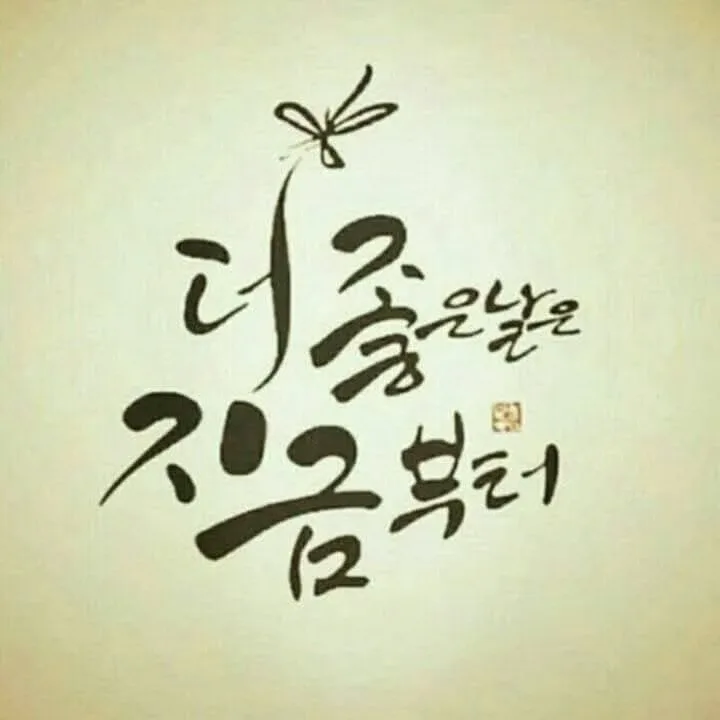 더 좋은 날은
지금부터